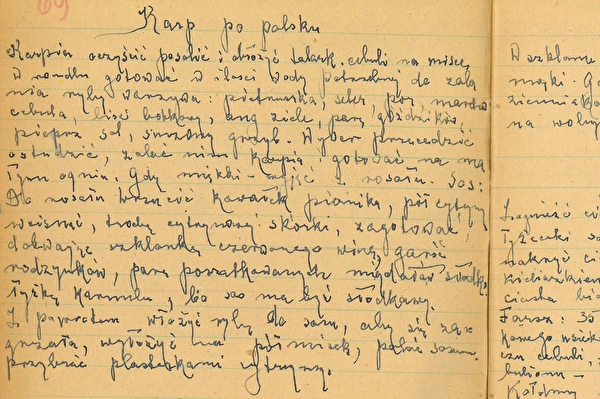 69
Karp po polsku
Karpia oczyścić posolić i obłożyć talark. cebuli na miskę,
w rondlu gotować w ilości wody potrzebnej do zala
nia ryby warzywa: pietruszka, seler, por, marchew
cebula, liść bobkowy, ang ziele, parę goździków,
pieprz sól, suszony grzyb. Wywar przecedzić
ostudzić, zalać nim karpia i gotować na ma
łym ogniu. Gdy miękki - wyjąć z rosołu. Sos:
Do rosołu wrzucić kawałek piernika, pół cytryny
wcisnąć, trochę cytrynowej skórki, zagotować,
dolewając szklankę czerwonego wina, garść
rodzynków, parę poszatkowanych migdałów słodk,
łyżkę karmelu, bo sos ma być słodkawy.
Z powrotem włożyć rybę do sosu, aby się zag
grzała, wyłożyć na półmisek, polać sosem
przybrać plasterkami cytryny.
W szklance
mąki. G
ziemniaka
na wolny
Zagnieść ci
łyżeczki so
nakryć ci
kieliszkiem
ciasta
Farsz: 35
kowego
cebuli,
bulionu -
Kołduny